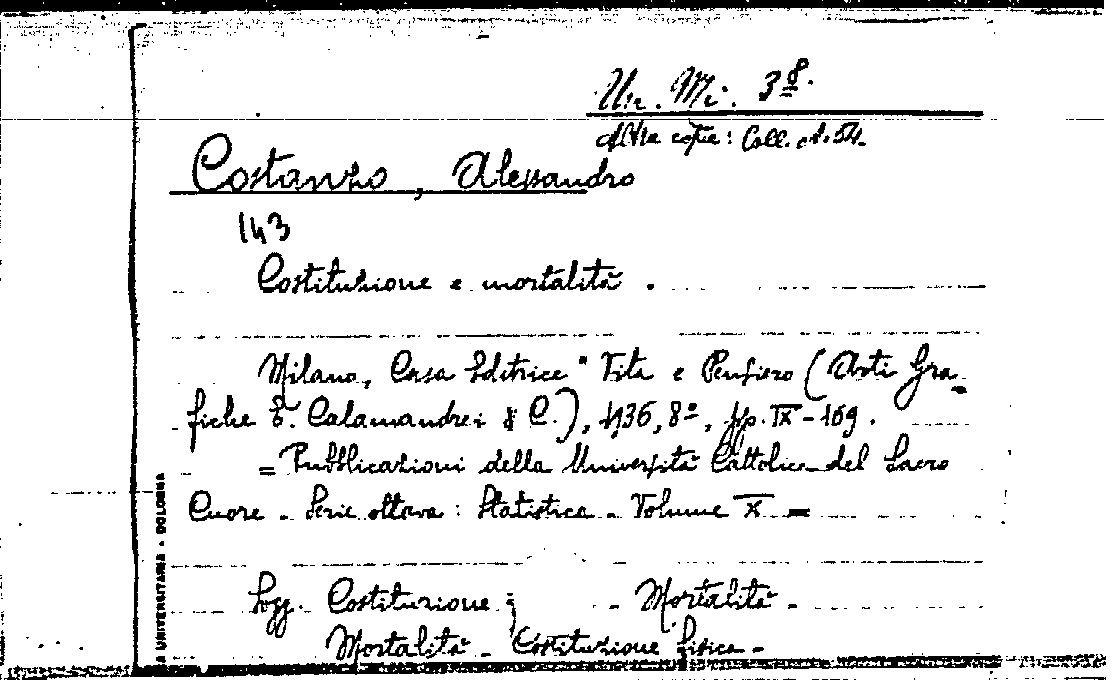 Un. Mi. 3 8.
Altra copia: Coll. A. 54.
Costanzo, Alessandro
143
Costituzione e mortalità.
Milano, Casa Editrice "Vita e Pensiero (Arti Gra-
fiche E. Calamandrei & C.), 1936, 8º, pp. IX-169.
= Pubblicazioni della Università Cattolica del Sacro
Cuore - Serie ottava: Statistica - Volume X =
Sogg. Costituzione; - Mortalità -
Mortalità - Costituzione fisica -
A UNIVERSITARIA - BOLOGNA